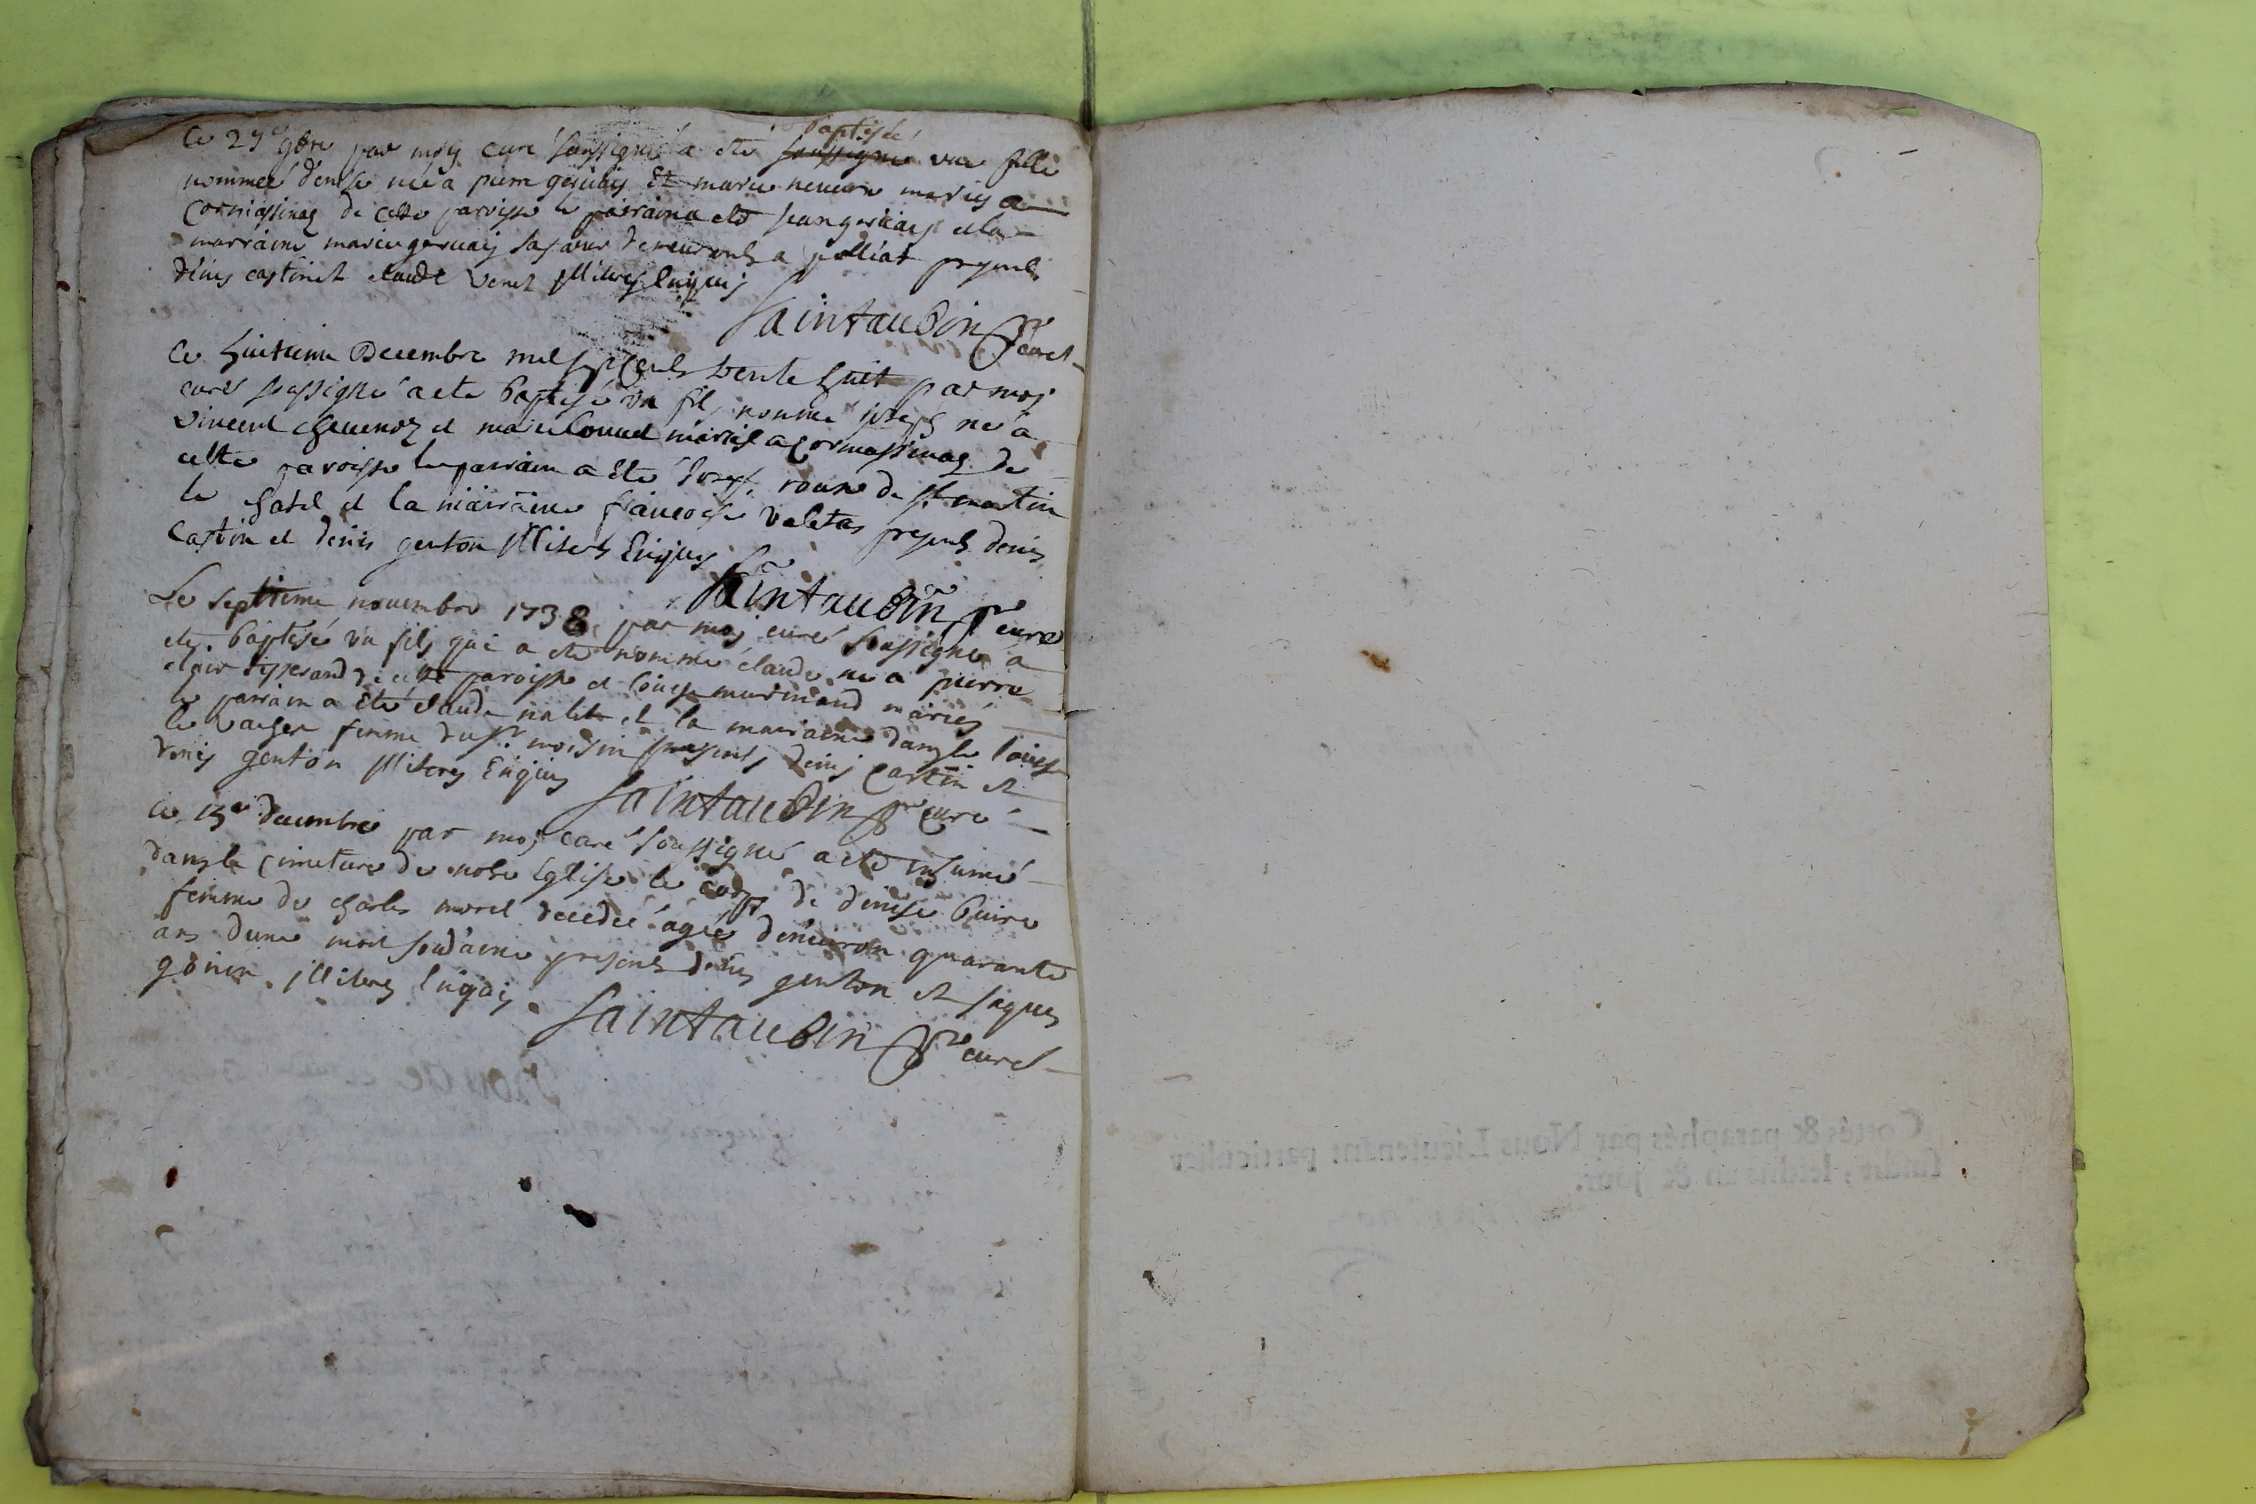 baptisée
Ce 27e 9bre par moy curé soussigné a eté soussigné une fille
nommee denise née a pierre gervais Et marie neveure mariés a
Cormassinag de cette paroisse le parrain a eté jean gervais et la
marraine marie gervais sa sœur demeurants a polliat presents
denis castin et claude veuet illiterez Enquis
Saintaubin ptre curé
Ce huitieme Decembre mil sept cents trente huit par moy
curé soussigné a ete baptisé un fils nommé joseph né a
vincent chavenoz et marie mariés a Cormassinag de
cette paroisse le parrain a eté joseph roune de st martin
le chatel et la marraine francoise valetas presents denis
Castin et denis genton illiterez Enquis
Saintaubin ptre curé
Le septieme novembre 1738 par moj curé soussigné a
ete baptisé un fils qui a ete nommé claude né a pierre
clair tisserand de cette paroisse et Louise murinand mariés
le parrain a eté claude nalet et la marraine damlle louise
le vacher femme du sr. moisin presents denis Castin et
denis genton illiterez Enquis
Saintaubin ptre curé
Ce 13e decembre par moy curé soussigné a eté inhumé
dans le cimetiere de notre Eglise le corps de denise buire
femme de charles morel decedée agée d'environ quarante
ans d'une mort soudaine presents denis genton et jaques
gonin illiterez Enquis
Saintaubin ptre curé
Cottés & paraphés par Nous Lieutenant particulier
susdit, lesdits an & jour.